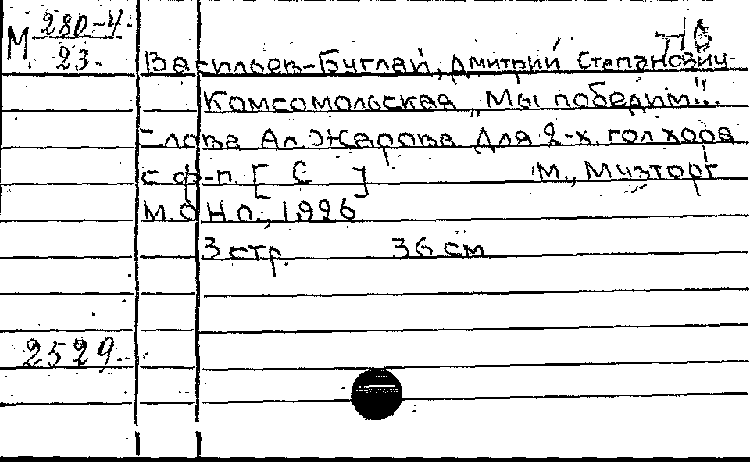 М 280-4
23.
Васильев-Буглай, Дмитрий Степанович
Комсомольская „Мы победим".
Слова Ал. Жарова Для 2-х гол хора
с ф-п. [ С ] М., Музторг
М.О Н О., 1926
3 стр. 36 см
2529.